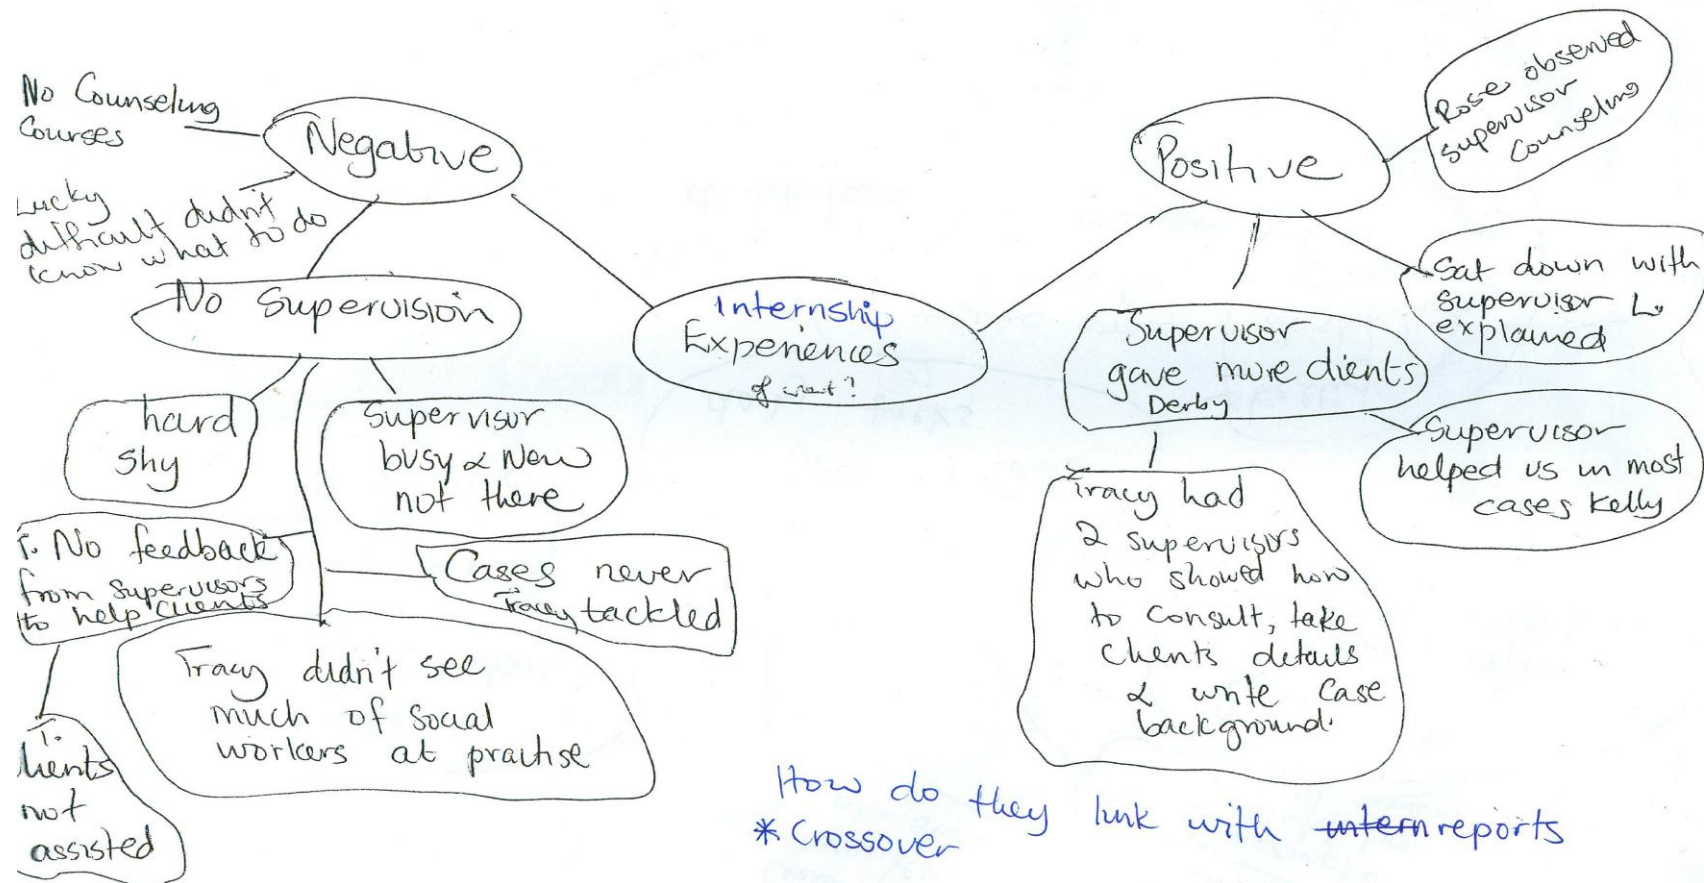 No Counseling
Courses
Negative
Lucky
difficult didn't
know what to do
No Supervision
hard
shy
Supervisor
busy & New
not there
T. No feedback
from supervisors
to help clients
Cases never
Tracy tackled
Tracy didn't see
much of social
workers at practise
T.
lients
not
assisted
Internship
Experiences
of what?
Positive
Rose observed
supervisor
Counseling
Sat down with
supervisor L.
explained
Supervisor
gave more clients
Derby
Supervisor
helped us in most
cases Kelly
Tracy had
2 supervisors
who showed how
to consult, take
clients details
& write case
background.
How do they link with intern reports
* Crossover